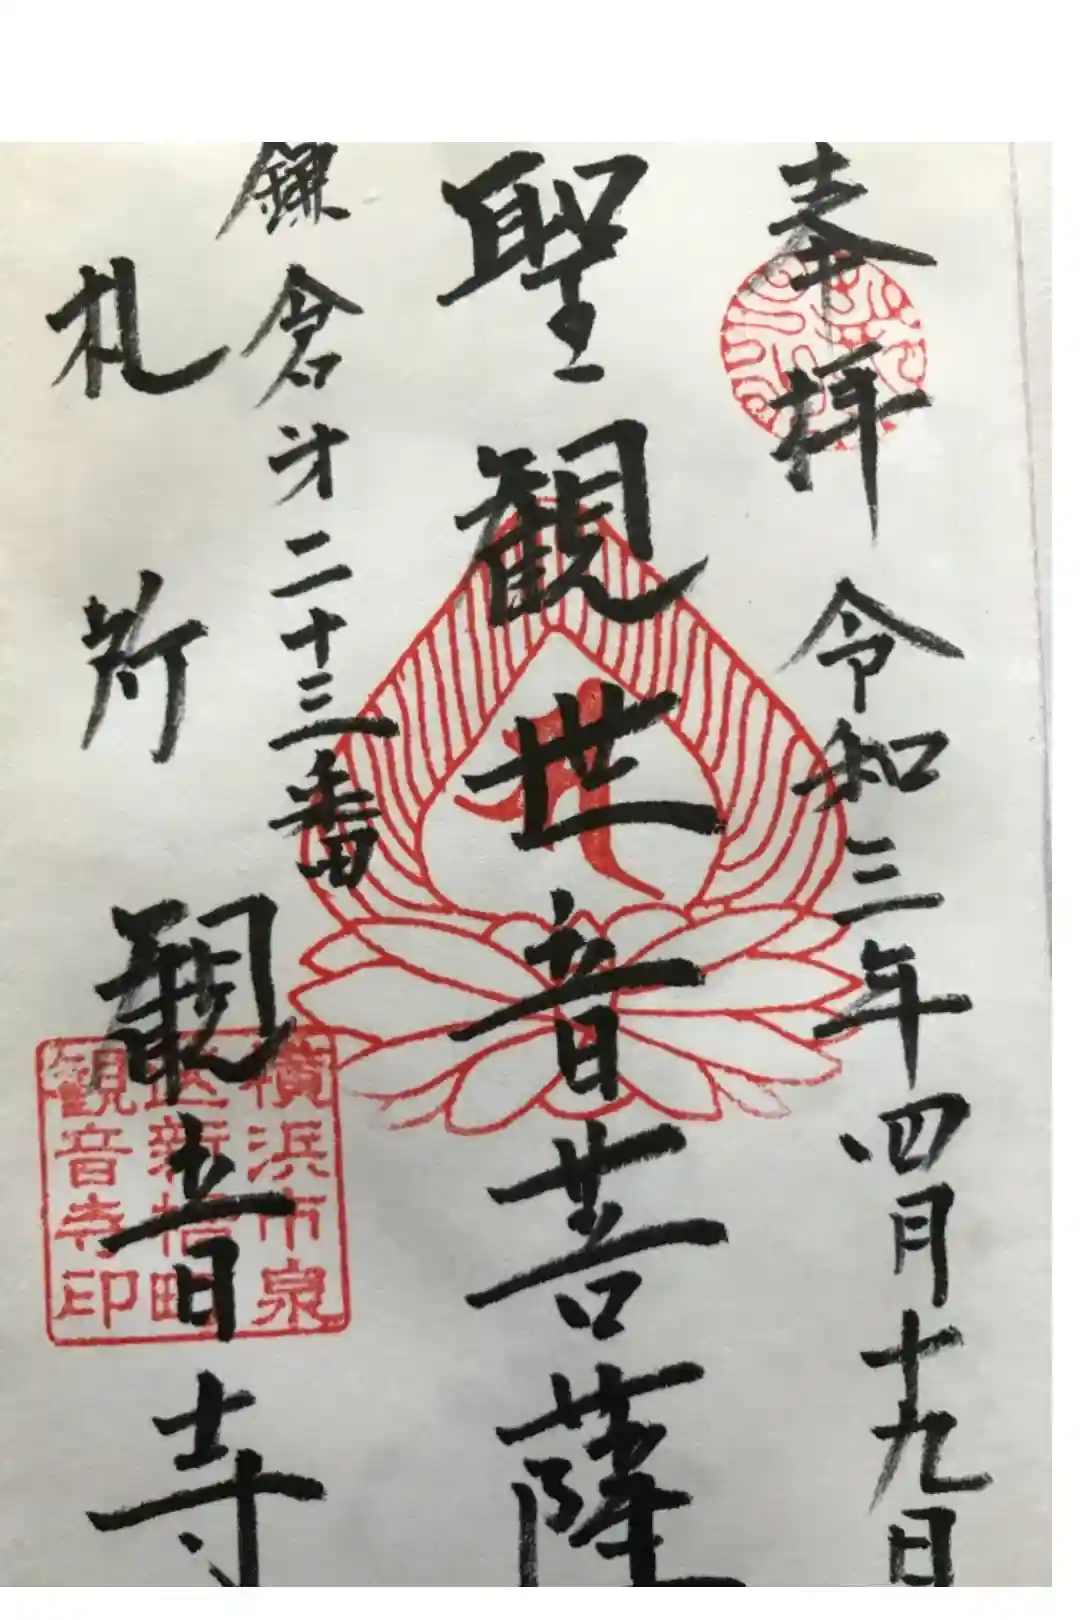 奉拝
令和三年四月十九日
聖観世音菩薩
鎌倉㐧二十三番
札所
観音寺
横浜市泉
区新橋町
観音寺印